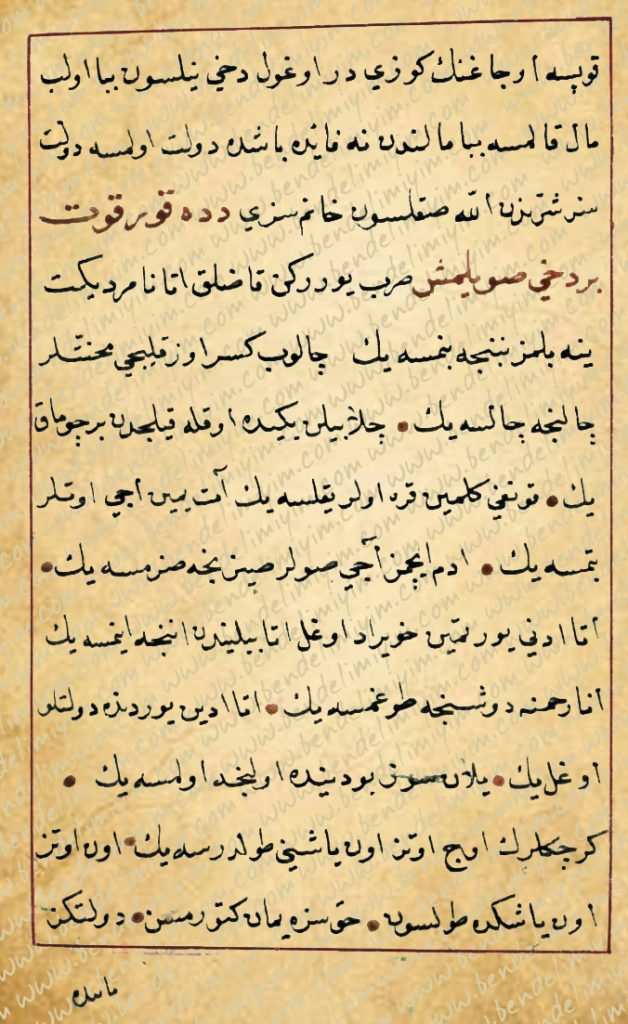 قوپسه اوجاغنك كوزي در اوغول دخي نيلسون ببا اولب
مال قالمسه ببا مالندن نه فايده باشده دولت اولمسه دولت
سز شرّندن الله صقلسون خانم سزي دده قورقوت
بر دخي صويلمش صرب يوررkن قاضلق اتا نامرد يكت
ينه بلمز بننجه بنمسه يك چالوب كسر اوز قليجي محنتلر
چالنجه چالمسه يك • چلابيلن يكيده اوقله قيلجدن بر چوماق
يك • قونغي كلمين قره اولر يقلسه يك آت يمين اجي اوتلر
بتمسه يك • ادم ايچمز آجي صولر صيزنجه صزمسه يك •
اتا ادني يورتمين خويراد اوغل اتا بيليندن اننجه اينمسه يك
انا رحمنه دوشنجه طوغمسه يك • اتا ادين يوردنده دولتلو
اوغل يك • يلان سوز بو دنيده اولنجه اولمسه يك •
كرچكلرك اوج اوتز اون ياشيني طولدرسه يك • اون اوتز
اون ياشكده طولسون • حق سزه يمان كتورمسن • دولتكز